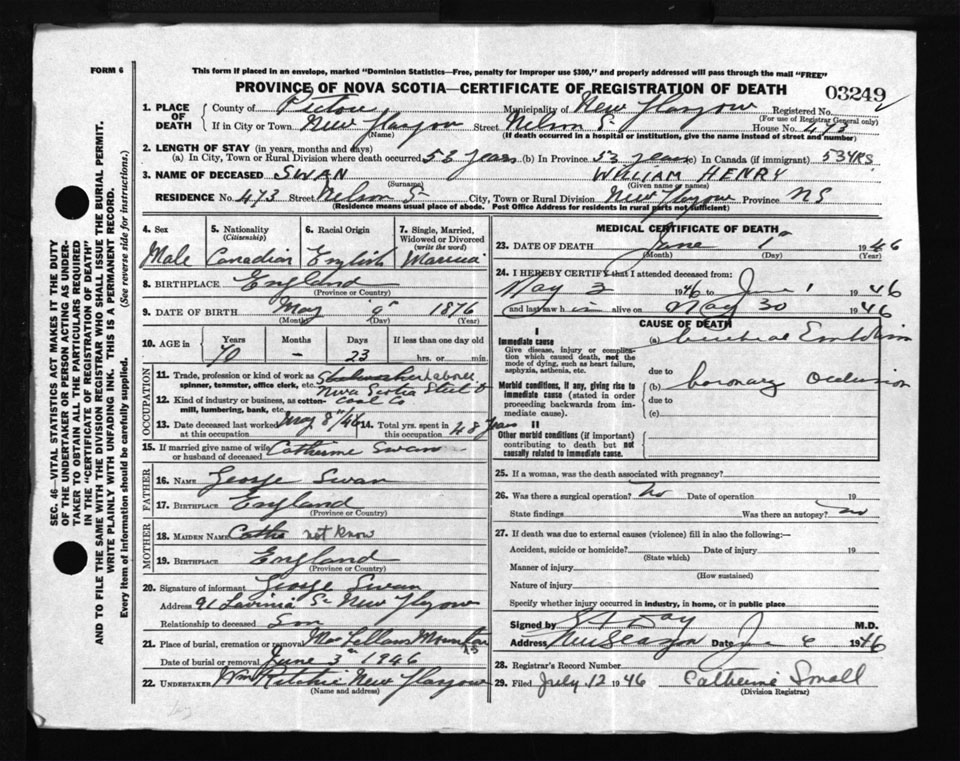 FORM 6
This form if placed in an envelope, marked "Dominion Statistics—Free, penalty for improper use $300," and properly addressed will pass through the mail "FREE"
PROVINCE OF NOVA SCOTIA—CERTIFICATE OF REGISTRATION OF DEATH
03249
1. PLACE OF DEATH
County of Pictou Municipality of New Glasgow Registered No.
(For use of Registrar General only)
If in City or Town New Glasgow Street Nelson St House No. 473
(Name) (If death occurred in a hospital or institution, give the name instead of street and number)
2. LENGTH OF STAY (in years, months and days)
(a) In City, Town or Rural Division where death occurred 53 years (b) In Province 53 years (c) In Canada (if immigrant) 53 YRS
3. NAME OF DECEASED SWAN WILLIAM HENRY
(Surname) (Given name or names)
RESIDENCE No. 473 Street Nelson St City, Town or Rural Division New Glasgow Province NS
(Residence means usual place of abode. Post Office Address for residents in rural parts not sufficient)
4. Sex
Male
5. Nationality
(Citizenship)
Canadian
6. Racial Origin
English
7. Single, Married, Widowed or Divorced
(write the word)
Married
8. BIRTHPLACE England
(Province or Country)
9. DATE OF BIRTH May 9 1876
(Month) (Day) (Year)
10. AGE in Years Months Days If less than one day old
70 - 23 hrs. or min.
OCCUPATION
11. Trade, profession or kind of work as spinner, teamster, office clerk, etc. Steelworker Labourer
12. Kind of industry or business, as cotton-mill, lumbering, bank, etc. Nova Scotia Steel & Coal Co
13. Date deceased last worked at this occupation May 8th/46
14. Total yrs. spent in this occupation 48 years
15. If married give name of wife or husband of deceased Catherine Swan
FATHER
16. NAME George Swan
17. BIRTHPLACE England
(Province or Country)
MOTHER
18. MAIDEN NAME not know
19. BIRTHPLACE England
(Province or Country)
20. Signature of informant George Swan
Address 91 Lavinia St New Glasgow
Relationship to deceased Son
21. Place of burial, cremation or removal MacLellans Mountain NS
Date of burial or removal June 3rd 1946
22. UNDERTAKER Wm Ritchie New Glasgow
(Name and address)
MEDICAL CERTIFICATE OF DEATH
23. DATE OF DEATH June 1st 1946
(Month) (Day) (Year)
24. I HEREBY CERTIFY that I attended deceased from:
May 3 1946 to June 1 1946
and last saw him alive on May 30 1946
CAUSE OF DEATH
I
Immediate cause
Give disease, injury or complication which caused death, not the mode of dying, such as heart failure, asphyxia, asthenia, etc.
(a) Cerebral Embolism
due to
Morbid conditions, if any, giving rise to immediate cause (stated in order proceeding backwards from immediate cause).
(b) Coronary Occlusion
due to
(c)
II
Other morbid conditions (if important) contributing to death but not causally related to immediate cause.
25. If a woman, was the death associated with pregnancy?
26. Was there a surgical operation? No Date of operation 19
State findings Was there an autopsy? no
27. If death was due to external causes (violence) fill in also the following:—
Accident, suicide or homicide? Date of injury 19
(State which)
Manner of injury
(How sustained)
Nature of injury
Specify whether injury occurred in industry, in home, or in public place
Signed by Day M.D.
Address New Glasgow Date June 6 1946
28. Registrar's Record Number
29. Filed July 12 1946 Catherine Small
(Division Registrar)
SEC. 46—VITAL STATISTICS ACT MAKES IT THE DUTY
OF THE UNDERTAKER OR PERSON ACTING AS UNDER-
TAKER TO OBTAIN ALL THE PARTICULARS REQUIRED
IN THE "CERTIFICATE OF REGISTRATION OF DEATH"
AND TO FILE THE SAME WITH THE DIVISION REGISTRAR WHO SHALL ISSUE THE BURIAL PERMIT.
WRITE PLAINLY WITH UNFADING INK. THIS IS A PERMANENT RECORD.
Every item of information should be carefully supplied. (See reverse side for instructions.)